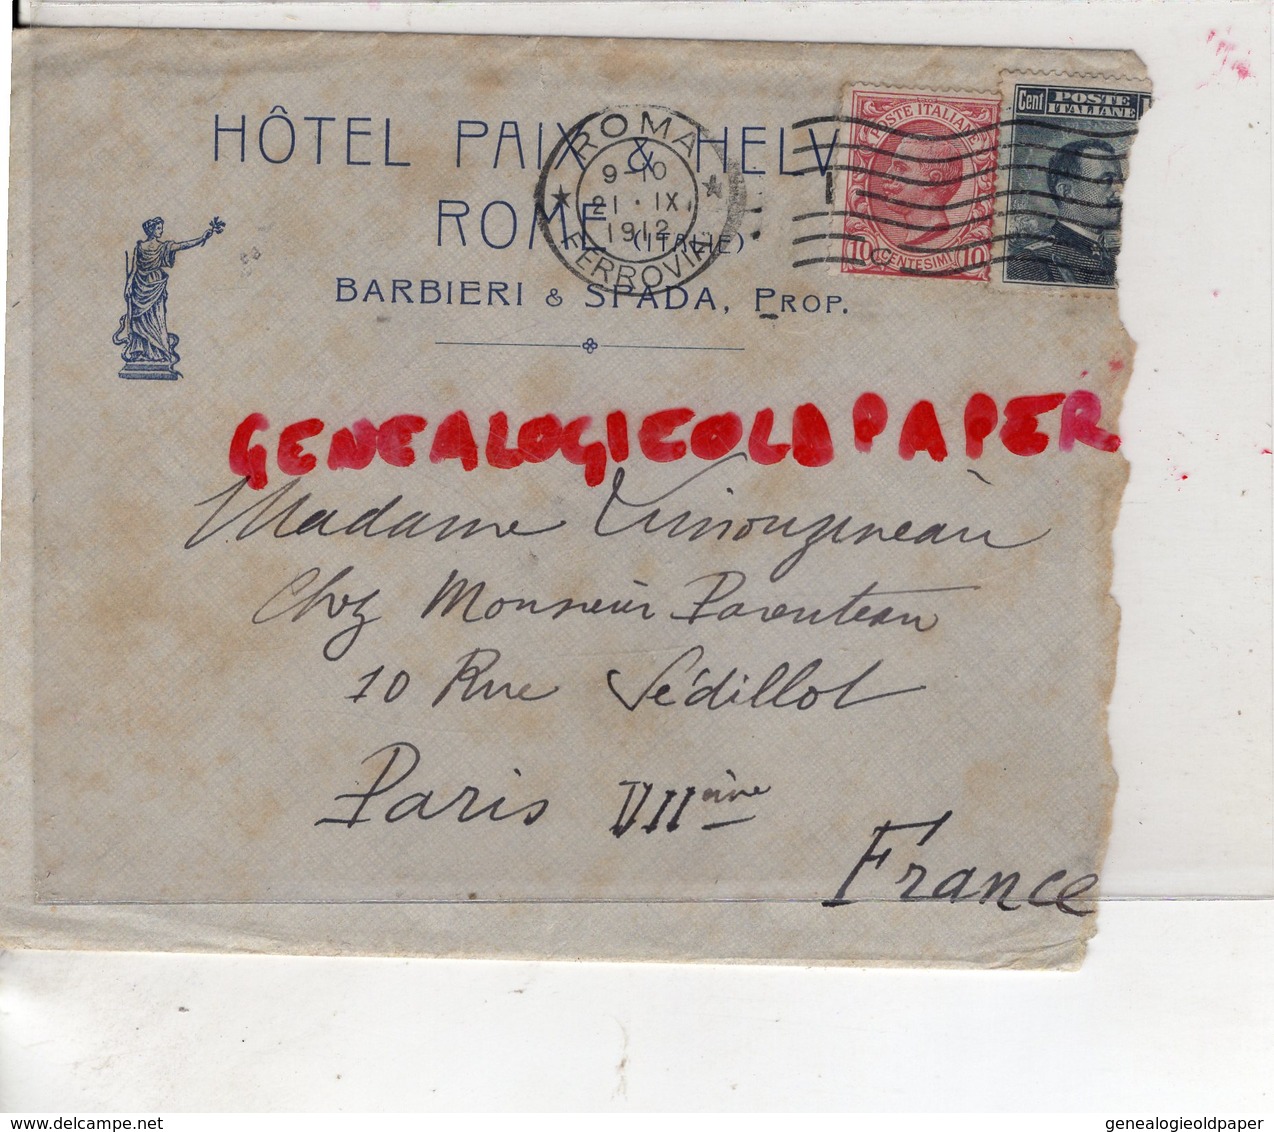 HÔTEL PAIX & HELV
ROME (ITALIE)
BARBIERI & SPADA, PROP.
ROMA
9-10
21 · IX
1912
FERROVIA
POSTE ITALIANE
10 CENTESIMI 10
Cent POSTE
ITALIANE
GENEALOGIEOLDPAPER
Madame
Chez Monsieur Parenteau
10 Rue Sédillot
Paris VIIème
France
genealogieoldpaper